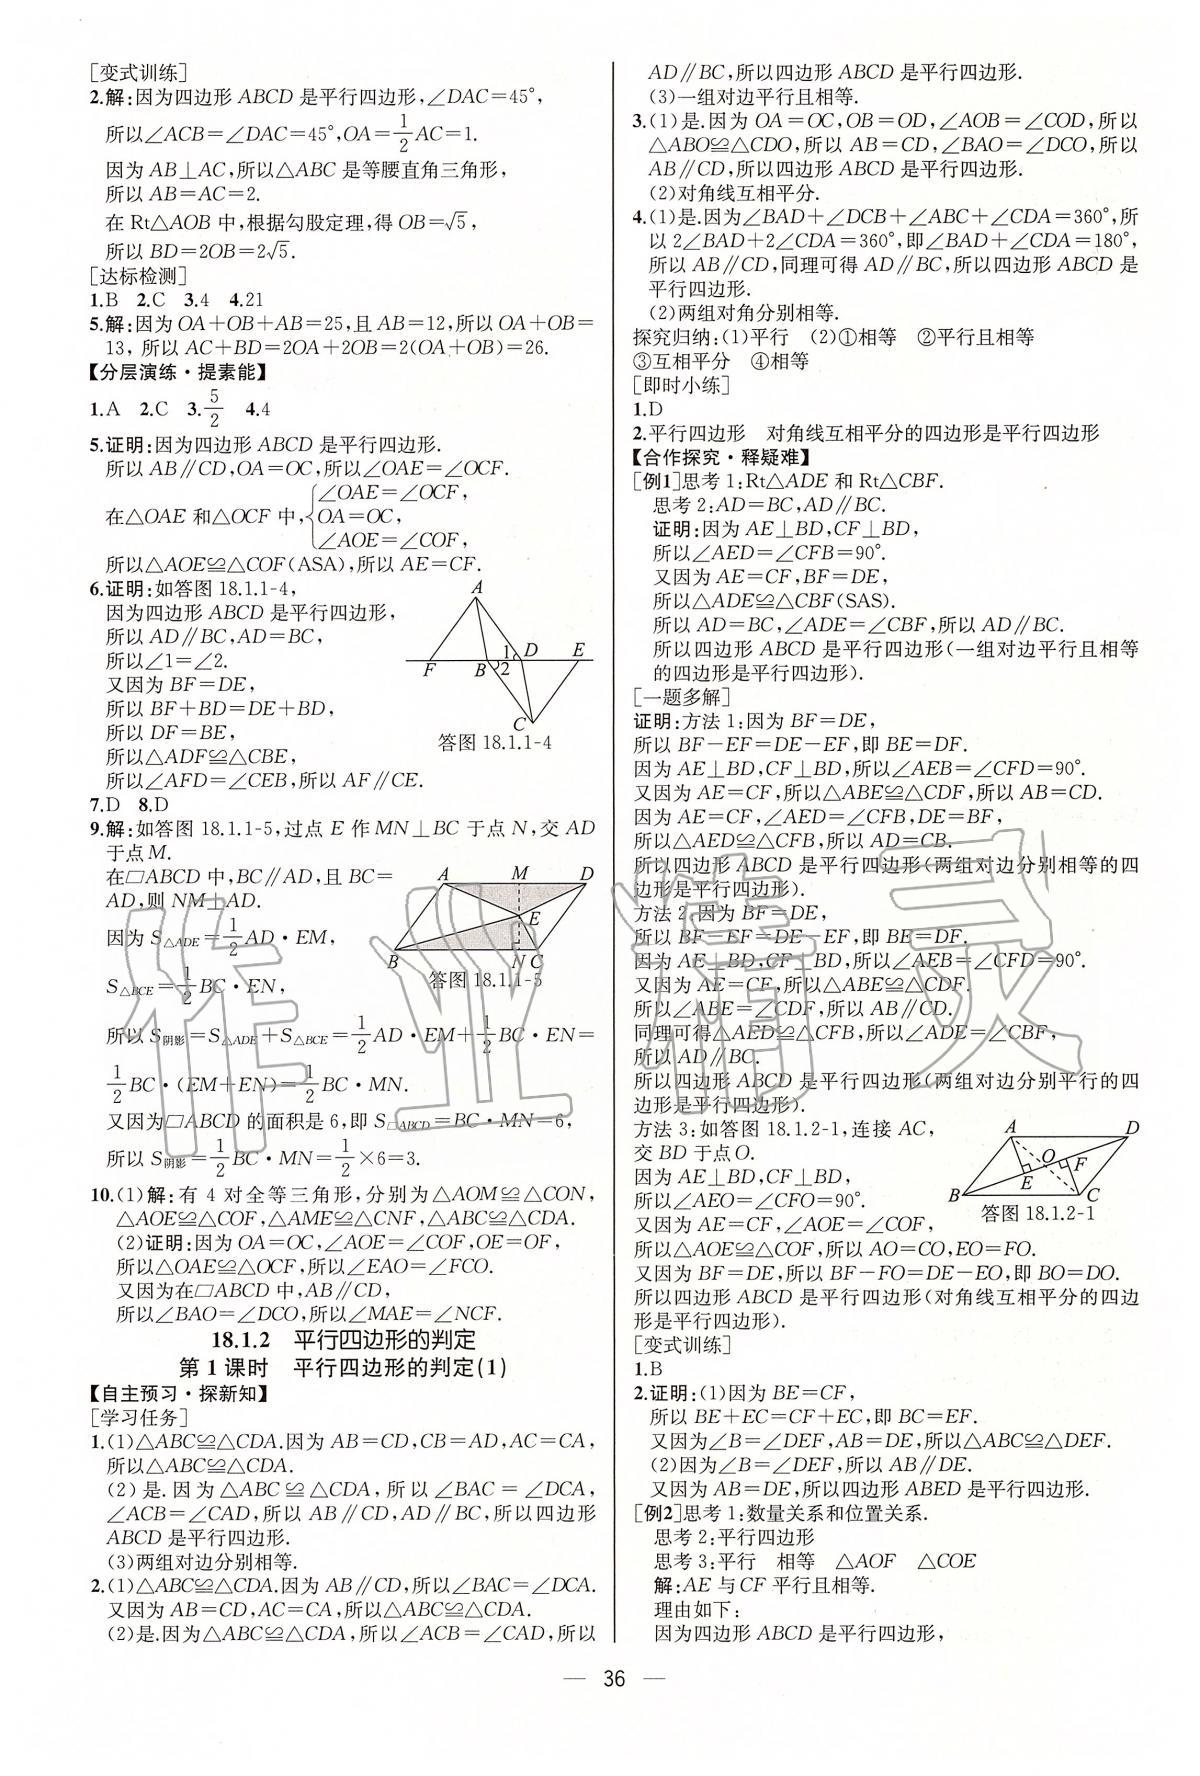 [变式训练]
2.解:因为四边形 ABCD 是平行四边形,∠DAC=45°,
所以∠ACB=∠DAC=45°,OA=1/2 AC=1.
因为 AB⊥AC,所以△ABC 是等腰直角三角形,
所以 AB=AC=2.
在 Rt△AOB 中,根据勾股定理,得 OB=√5,
所以 BD=2OB=2√5.
[达标检测]
1.B 2.C 3.4 4.21
5.解:因为 OA+OB+AB=25,且 AB=12,所以 OA+OB=
13, 所以 AC+BD=2OA+2OB=2(OA+OB)=26.
【分层演练·提素能】
1.A 2.C 3.5/2 4.4
5.证明:因为四边形 ABCD 是平行四边形.
所以 AB∥CD,OA=OC,所以∠OAE=∠OCF.
在△OAE 和△OCF 中,{∠OAE=∠OCF,
OA=OC,
∠AOE=∠COF,
所以△AOE≌△COF(ASA),所以 AE=CF.
6.证明:如答图 18.1.1-4,
因为四边形 ABCD 是平行四边形,
所以 AD∥BC,AD=BC,
所以∠1=∠2.
又因为 BF=DE,
所以 BF+BD=DE+BD,
所以 DF=BE,
所以△ADF≌△CBE,
所以∠AFD=∠CEB,所以 AF∥CE.
A
1 D E
F B 2
C
答图 18.1.1-4
7.D 8.D
9.解:如答图 18.1.1-5,过点 E 作 MN⊥BC 于点 N,交 AD
于点 M.
在□ABCD 中,BC∥AD,且 BC=
AD,则 NM⊥AD.
因为 S△ADE=1/2 AD·EM,
S△BCE=1/2 BC·EN,
A M D
E
B N C
答图 18.1.1-5
所以 S阴影=S△ADE+S△BCE=1/2 AD·EM+1/2 BC·EN=
1/2 BC·(EM+EN)=1/2 BC·MN.
又因为□ABCD 的面积是 6,即 S□ABCD=BC·MN=6,
所以 S阴影=1/2 BC·MN=1/2×6=3.
10.(1)解:有 4 对全等三角形,分别为△AOM≌△CON,
△AOE≌△COF,△AME≌△CNF,△ABC≌△CDA.
(2)证明:因为 OA=OC,∠AOE=∠COF,OE=OF,
所以△OAE≌△OCF,所以∠EAO=∠FCO.
又因为在□ABCD 中,AB∥CD,
所以∠BAO=∠DCO,所以∠MAE=∠NCF.
18.1.2 平行四边形的判定
第 1 课时 平行四边形的判定(1)
【自主预习·探新知】
[学习任务]
1.(1)△ABC≌△CDA.因为 AB=CD,CB=AD,AC=CA,
所以△ABC≌△CDA.
(2)是.因为△ABC≌△CDA,所以∠BAC=∠DCA,
∠ACB=∠CAD,所以 AB∥CD,AD∥BC,所以四边形
ABCD 是平行四边形.
(3)两组对边分别相等.
2.(1)△ABC≌△CDA.因为 AB∥CD,所以∠BAC=∠DCA.
又因为 AB=CD,AC=CA,所以△ABC≌△CDA.
(2)是.因为△ABC≌△CDA,所以∠ACB=∠CAD,所以
AD∥BC,所以四边形 ABCD 是平行四边形.
(3)一组对边平行且相等.
3.(1)是.因为 OA=OC,OB=OD,∠AOB=∠COD,所以
△ABO≌△CDO,所以 AB=CD,∠BAO=∠DCO,所以
AB∥CD,所以四边形 ABCD 是平行四边形.
(2)对角线互相平分.
4.(1)是.因为∠BAD+∠DCB+∠ABC+∠CDA=360°,所
以 2∠BAD+2∠CDA=360°,即∠BAD+∠CDA=180°,
所以 AB∥CD,同理可得 AD∥BC,所以四边形 ABCD 是
平行四边形.
(2)两组对角分别相等.
探究归纳:(1)平行 (2)①相等 ②平行且相等
③互相平分 ④相等
[即时小练]
1.D
2.平行四边形 对角线互相平分的四边形是平行四边形
【合作探究·释疑难】
[例1]思考 1:Rt△ADE 和 Rt△CBF.
思考 2:AD=BC,AD∥BC.
证明:因为 AE⊥BD,CF⊥BD,
所以∠AED=∠CFB=90°.
又因为 AE=CF,BF=DE,
所以△ADE≌△CBF(SAS).
所以 AD=BC,∠ADE=∠CBF,所以 AD∥BC.
所以四边形 ABCD 是平行四边形(一组对边平行且相等
的四边形是平行四边形).
[一题多解]
证明:方法 1:因为 BF=DE,
所以 BF-EF=DE-EF,即 BE=DF.
因为 AE⊥BD,CF⊥BD,所以∠AEB=∠CFD=90°.
又因为 AE=CF,所以△ABE≌△CDF,所以 AB=CD.
因为 AE=CF,∠AED=∠CFB,DE=BF,
所以△AED≌△CFB,所以 AD=CB.
所以四边形 ABCD 是平行四边形(两组对边分别相等的四
边形是平行四边形).
方法 2:因为 BF=DE,
所以 BF-EF=DE-EF,即 BE=DF.
因为 AE⊥BD,CF⊥BD,所以∠AEB=∠CFD=90°.
又因为 AE=CF,所以△ABE≌△CDF.
所以∠ABE=∠CDF,所以 AB∥CD.
同理可得△AED≌△CFB,所以∠ADE=∠CBF,
所以 AD∥BC.
所以四边形 ABCD 是平行四边形(两组对边分别平行的四
边形是平行四边形).
方法 3:如答图 18.1.2-1,连接 AC,
交 BD 于点 O.
因为 AE⊥BD,CF⊥BD,
所以∠AEO=∠CFO=90°.
又因为 AE=CF,∠AOE=∠COF,
A D
O F
E
B C
答图 18.1.2-1
所以△AOE≌△COF,所以 AO=CO,EO=FO.
又因为 BF=DE,所以 BF-FO=DE-EO,即 BO=DO.
所以四边形 ABCD 是平行四边形(对角线互相平分的四边
形是平行四边形).
[变式训练]
1.B
2.证明:(1)因为 BE=CF,
所以 BE+EC=CF+EC,即 BC=EF.
又因为∠B=∠DEF,AB=DE,所以△ABC≌△DEF.
(2)因为∠B=∠DEF,所以 AB∥DE.
又因为 AB=DE,所以四边形 ABED 是平行四边形.
[例2]思考 1:数量关系和位置关系.
思考 2:平行四边形
思考 3:平行 相等 △AOF △COE
解:AE 与 CF 平行且相等.
理由如下:
因为四边形 ABCD 是平行四边形,
— 36 —
作业精灵